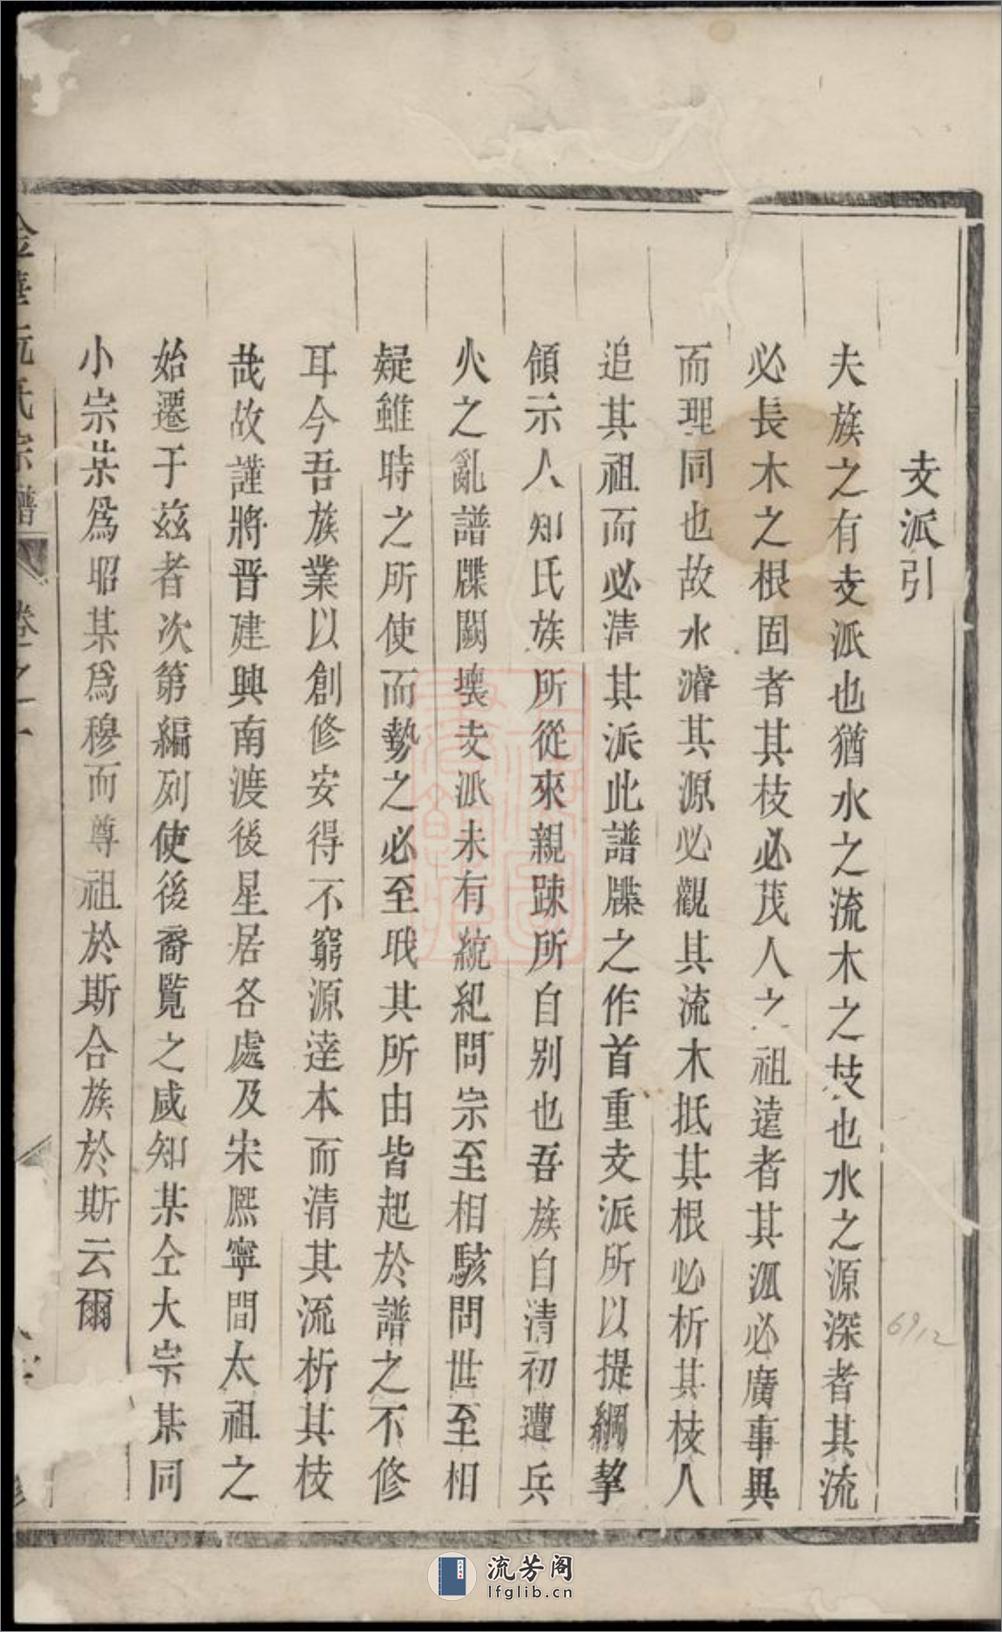 支派引
夫族之有支派也猶水之流木之枝也水之源深者其流
必長木之根固者其枝必茂人之祖遠者其派必廣事異
而理同也故水濬其源必觀其流木抵其根必析其枝人
追其祖而必清其派此譜牒之作首重支派所以提綱挈
領示人知氏族所從來親疎所自別也吾族自清初遭兵
火之亂譜牒闕壞支派未有統紀問宗至相駭問世至相
疑雖時之所使而勢之必至哉其所由皆起於譜之不修
耳今吾族業以創修安得不窮源達本而清其流析其枝
哉故謹將晋建興南渡後星居各處及宋熈寧間太祖之
始遷于茲者次第編列使後裔覧之咸知某仝大宗某同
小宗某爲昭某爲穆而尊祖於斯合族於斯云爾
金華阮氏宗譜 卷之一
6912
流芳阁
lfglib.cn